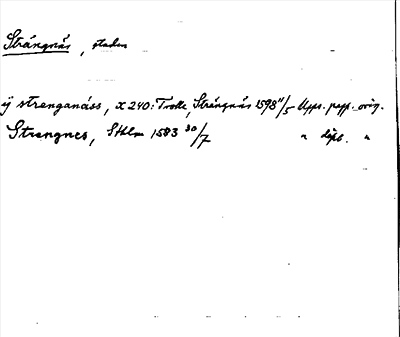 Strängnäs, staden
ij strenganäss, x 240: Trolle, Strängnäs 1598 11/5 Upps. papp. orig.
Strengnes, Sthlm 1583 30/7 " dipl. "